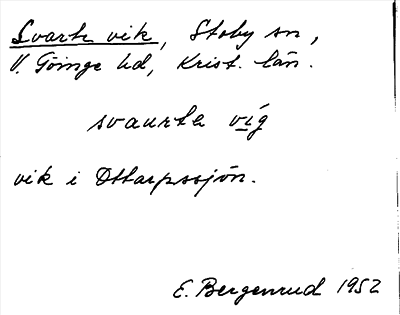 Svarte vik, Stoby sn,
V. Göinge hd, Krist. län.
svaurta víg
vik i Ottarpssjön.
E. Bergenrud 1952